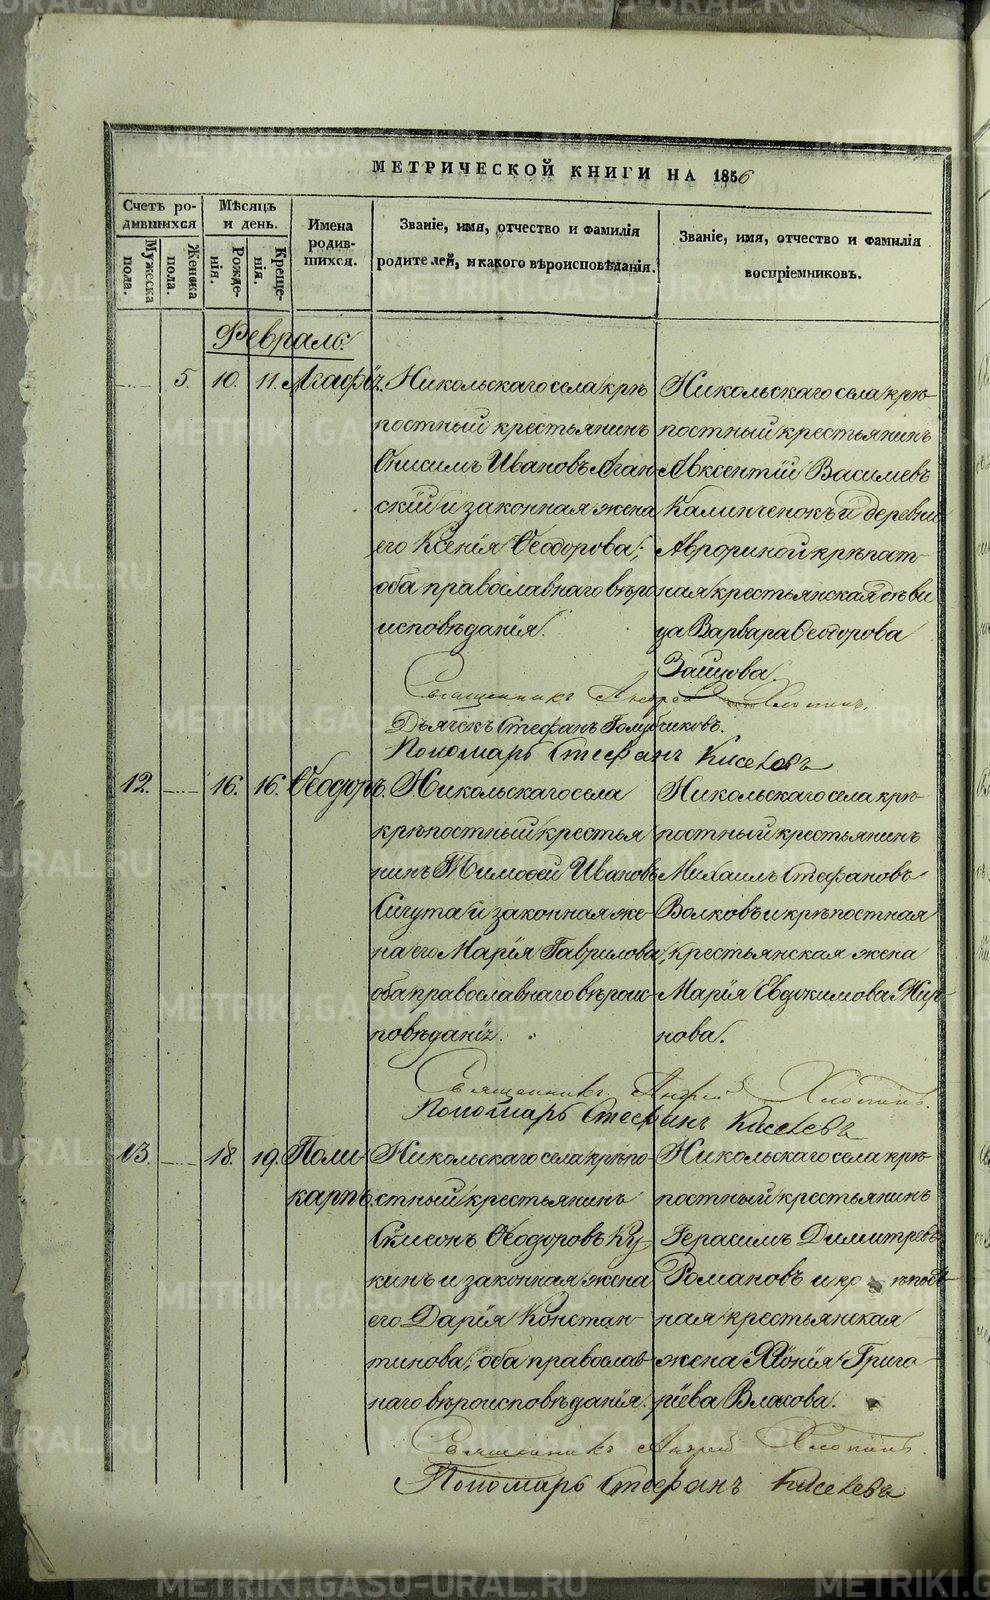 МЕТРИЧЕСКОЙ КНИГИ НА 1856
Счетъ ро-
дившихся
Мужеска
пола.
Женска
пола.
Мѣсяцъ
и день.
Рожде-
нія.
Креще-
нія.
Имена
родив-
шихся.
Званіе, имя, отчество и фамилія
родителей, и какого вѣроисповѣданія.
Званіе, имя, отчество и фамилія
воспріемниковъ.
Февраль.
5. 10. 11. Агафія.
Никольскаго села крѣ
постный крестьянинъ
Онисимъ Ивановъ Аган
скій и законная жена
его Ксенія Ѳеодорова;
оба православнаго вѣро
исповѣданія.
Никольскаго села крѣ-
постный крестьянинъ
Авксентій Васильевъ
Калинченокъ и деревни
Аврориной крѣпост-
ная крестьянская дѣви
ца Варвара Ѳеодорова
Зайцова.
Священникъ Андрей Хлопинъ.
Дьячекъ Стефанъ Голубчиковъ.
Пономарь Стефанъ Киселевъ
12. 16. 16. Ѳеодоръ.
Никольскаго села
крѣпостный крестья
нинъ Тимоѳей Ивановъ
Сигута и законная же-
на его Марія Гаврилова;
оба православнаго вѣроис-
повѣданія.
Никольскаго села крѣ-
постный крестьянинъ
Михаилъ Стефановъ
Волковъ и крѣпостная
крестьянская жена
Марія Евдокимова Жир-
нова.
Священникъ Андрей Хлопинъ.
Пономарь Стефанъ Киселевъ
13. 18. 19. Поли-
карпъ.
Никольскаго села крѣпо-
стный крестьянинъ
Симеонъ Ѳеодоровъ Ку-
кинъ и законная жена
его Дарія Констан-
тинова; оба православ-
наго вѣроисповѣданія.
Никольскаго села крѣ-
постный крестьянинъ
Герасимъ Димитревъ
Романовъ и крѣпост-
ная крестьянская
жена Хіонія Григо
ріева Власова.
Священникъ Андрей Хлопинъ.
Пономарь Стефанъ Киселевъ
METRIKI.GASO-URAL.RU